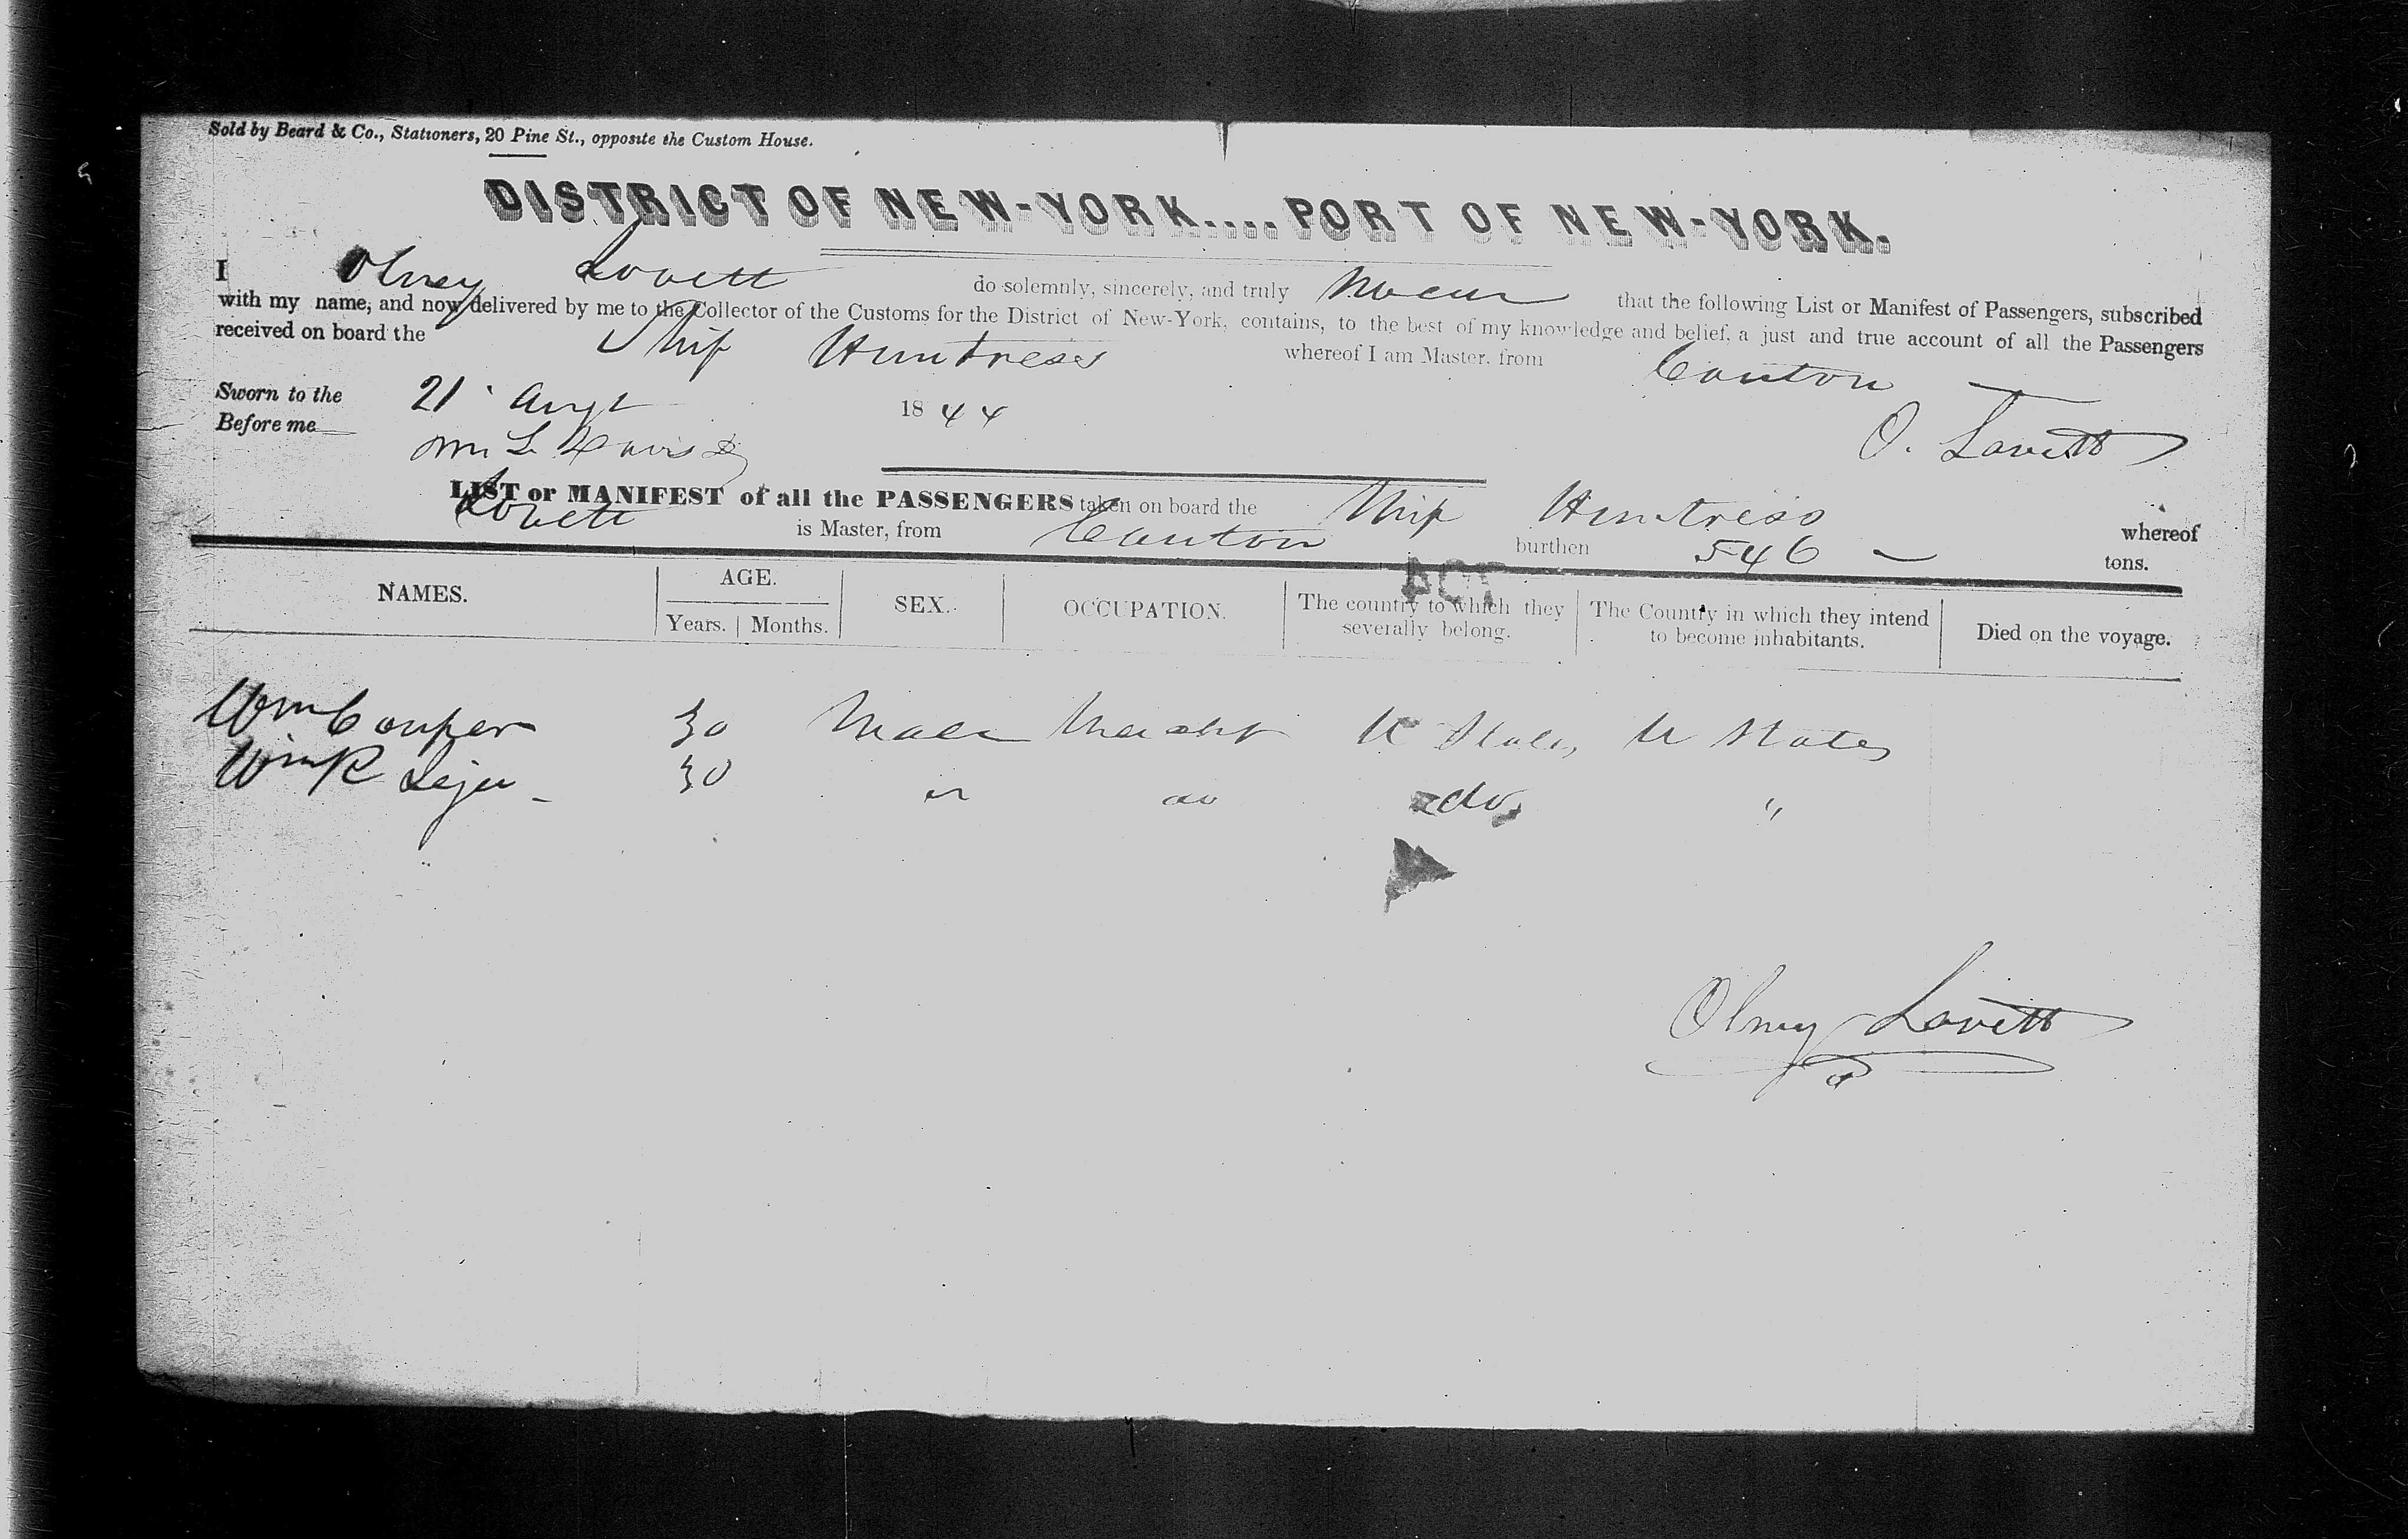 Sold by Beard & Co., Stationers, 20 Pine St., opposite the Custom House.
DISTRICT OF NEW-YORK....PORT OF NEW-YORK.
I Olney Lovett do solemnly, sincerely, and truly Swear that the following List or Manifest of Passengers, subscribed
with my name, and now delivered by me to the Collector of the Customs for the District of New-York, contains, to the best of my knowledge and belief, a just and true account of all the Passengers
received on board the Ship Huntress whereof I am Master, from Canton
Sworn to the 21 Augt 1844
Before me Wm L Davis O. Lovett
LIST or MANIFEST of all the PASSENGERS taken on board the Ship Huntress whereof
Lovett is Master, from Canton burthen 546 tons.
NAMES. AGE. SEX. OCCUPATION. The country to which they severally belong. The Country in which they intend to become inhabitants. Died on the voyage.
Years. Months.
Wm Couper 30 Male Mercht U States U States
Wm R 30 " do do "
Olney Lovett